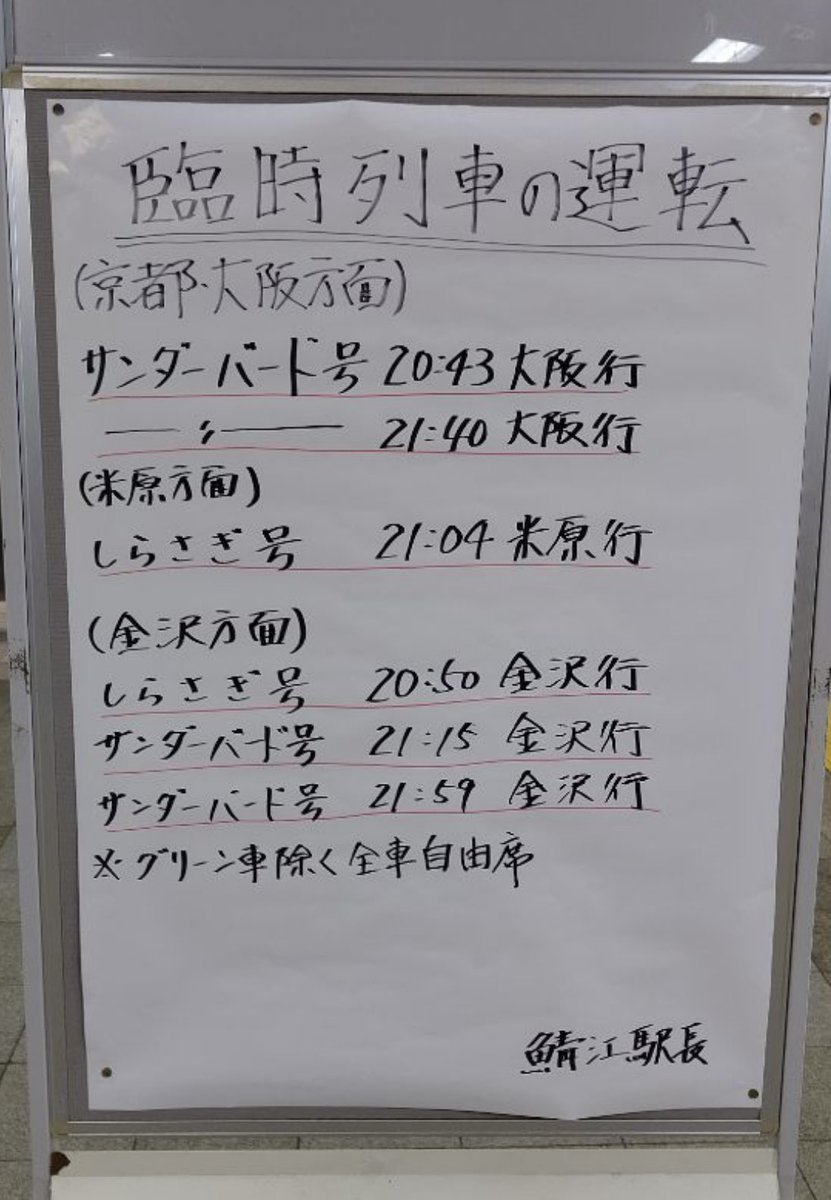 臨時列車の運転
(京都・大阪方面)
サンダーバード号 20:43 大阪行
―〃― 21:40 大阪行
(米原方面)
しらさぎ号 21:04 米原行
(金沢方面)
しらさぎ号 20:50 金沢行
サンダーバード号 21:15 金沢行
サンダーバード号 21:59 金沢行
※グリーン車除く全車自由席
鯖江駅長